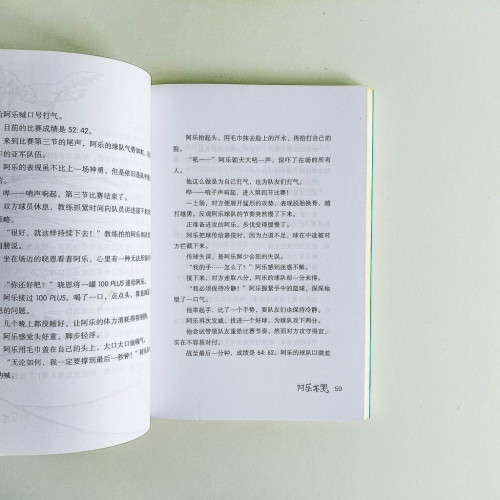 给阿乐喊口号打气。
目前的比赛成绩是 52: 42。
来到比赛第三节的尾声，阿乐的球队气势
的亚军队伍。
阿乐的表现虽不比上一场神勇，但是
哔——哨声响起，第三节比赛结束了。
双方球员休息，教练抓紧时间向队员讲述接下
策略。
“很好，就这样持续下去！”教练拍拍阿
别说。
坐在场边的晓恩看着阿乐，心里有一种无
“你还好吧？”晓恩将一罐 100 PLUS 递给阿乐。
阿乐接过 100 PLUS，喝了一口，点点头，算是
恩的问题。
几个晚上都没睡好，让阿乐的体力消耗得特别
阿乐感觉头好重，脚步轻浮。
阿乐用毛巾盖在自己的头上，大口大口
“无论如何，我一定要撑到最后一秒钟！”阿
呐喊。
阿乐抬起头，用毛巾抹去脸上的汗水，再拍打自己的
脸。
“吼——”阿乐朝天大吼一声，惊吓了在场的所有
人。
他这么做是为自己打气，也为队友们打气。
哔——哨子声响起，进入第四节比赛！
一上场，对方便展开猛烈的攻势，表现脱胎换骨，越
打越勇。反观阿乐球队的节奏突然慢了下来。
正准备进攻的阿乐，步伐变得缓慢了。
阿乐把球传给嘉俊时，因为力道不足，球在中途被对
方拦截下来。
传球失误，是阿乐鲜少会犯的失误。
“我的手……怎么了！”阿乐感到迷惑不解。
接下来，对方连取八分，阿乐的球队却一分未得。
“我必须保持冷静！”阿乐握紧手中的篮球，深深地
吸了一口气。
他举起手，比了一个手势，要队友们也保持冷静。
阿乐再次发威，投进一个好球，为球队攻下两分。
他会试带领队友重拾比赛节奏，然而对方攻守得宜，
实在不容易对付。
战至最后一分钟，成绩是 64: 62，阿乐的球队以微差
阿乐不累 59